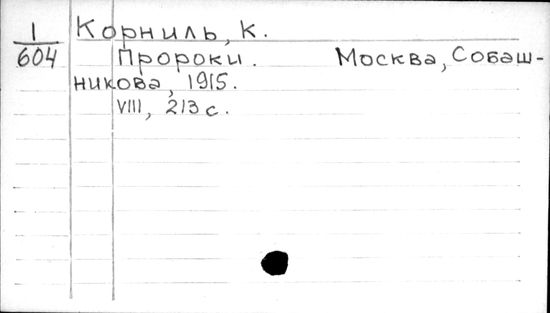 1 Корниль, К.
604 Пророки. Москва, Собаш-
никова, 1915.
VIII, 213 с.